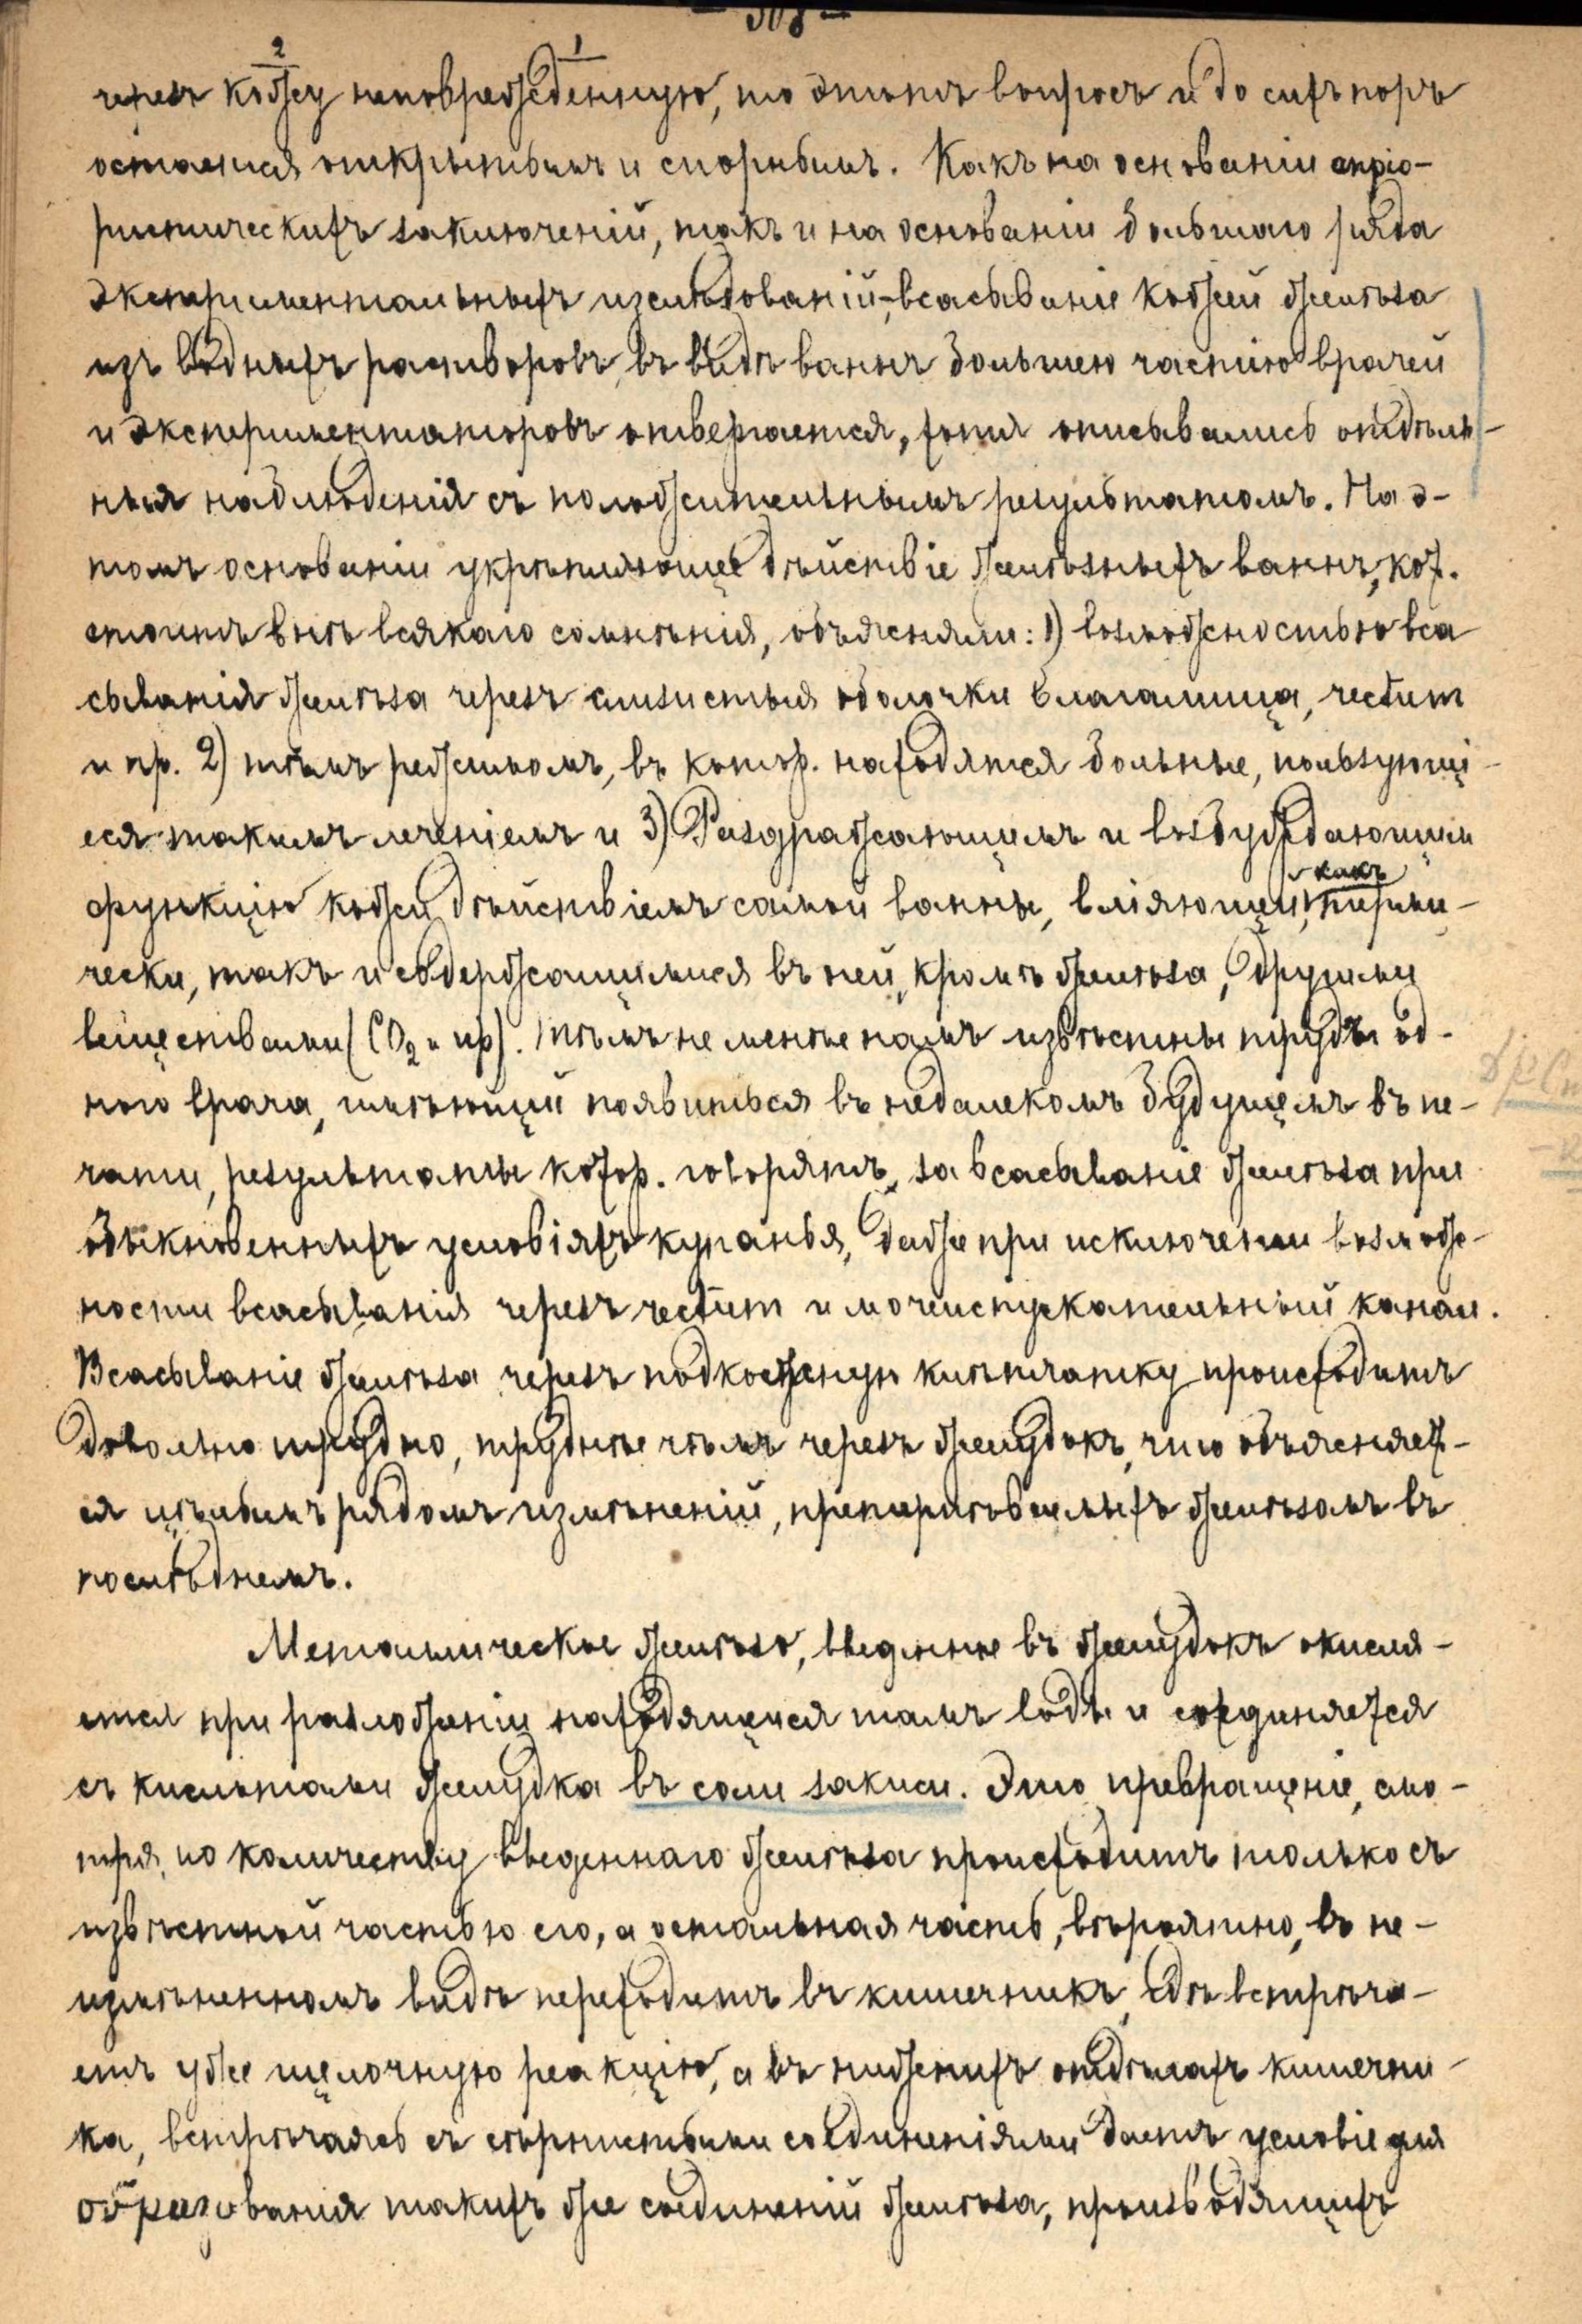 2 1
черезъ кожу неповрежденную, то этотъ вопросъ и до сихъ поръ
остается открытымъ и спорнымъ. Какъ на основаніи апріо-
ристическихъ заключеній, такъ и на основаніи большаго ряда
экспериментальныхъ изслѣдованій, всасываніе кожей желѣза
изъ водныхъ растворовъ въ видѣ ваннъ большею частію врачей
и экспериментаторовъ отвергается, хотя описывались отдѣль-
ныя наблюденія съ положительнымъ результатомъ. На э-
томъ основаніи укрѣпляющее дѣйствіе желѣзныхъ ваннъ, кот.
стоитъ внѣ всякаго сомнѣнія, объясняли: 1) возможностью вса
сыванія желѣза черезъ слизистыя оболочки влагалища, rectum
и пр. 2) тѣмъ режимомъ, въ котор. находятся больные, пользующі-
еся такимъ леченіемъ и 3) Раздражающимъ и возбуждающимъ
какъ
функцію кожи дѣйствіемъ самой ванны, вліяющей, терми-
чески, такъ и содержащимися въ ней, кромѣ желѣза, другими
веществами (CO2 и пр). Тѣмъ не менѣе намъ извѣстны труды од-
ного врача, имѣющій появиться въ недалекомъ будущемъ въ пе-
чати, результаты котор. говорятъ за всасываніе желѣза при
обыкновенныхъ условіяхъ купанья, даже при исключеніи возмож-
ности всасыванія черезъ rectum и мочеиспускательный канал.
Всасываніе желѣза черезъ подкожную клѣтчатку происходитъ
довольно трудно, труднѣе чѣмъ черезъ желудокъ, что объясняет-
ся цѣлымъ рядомъ измѣненій, претерпѣваемыхъ желѣзомъ въ
послѣднемъ.
Металлическое желѣзо, введенное въ желудокъ окисля-
ется при разложеніи находящейся тамъ воды и соединяется
съ кислотами желудка въ соли закиси. Это превращеніе, смо-
тря, по количеству введеннаго желѣза происходитъ только съ
извѣстной частью его, а остальная часть, вѣроятно, въ не-
измѣненномъ видѣ переходитъ въ кишечникъ, гдѣ встрѣча-
етъ уже щелочную реакцію, а въ нижнихъ отдѣлахъ кишечни-
ка, встрѣчаясь съ сѣрнистыми соединеніями даетъ условіе для
образованія такихъ же соединеній желѣза, производящихъ